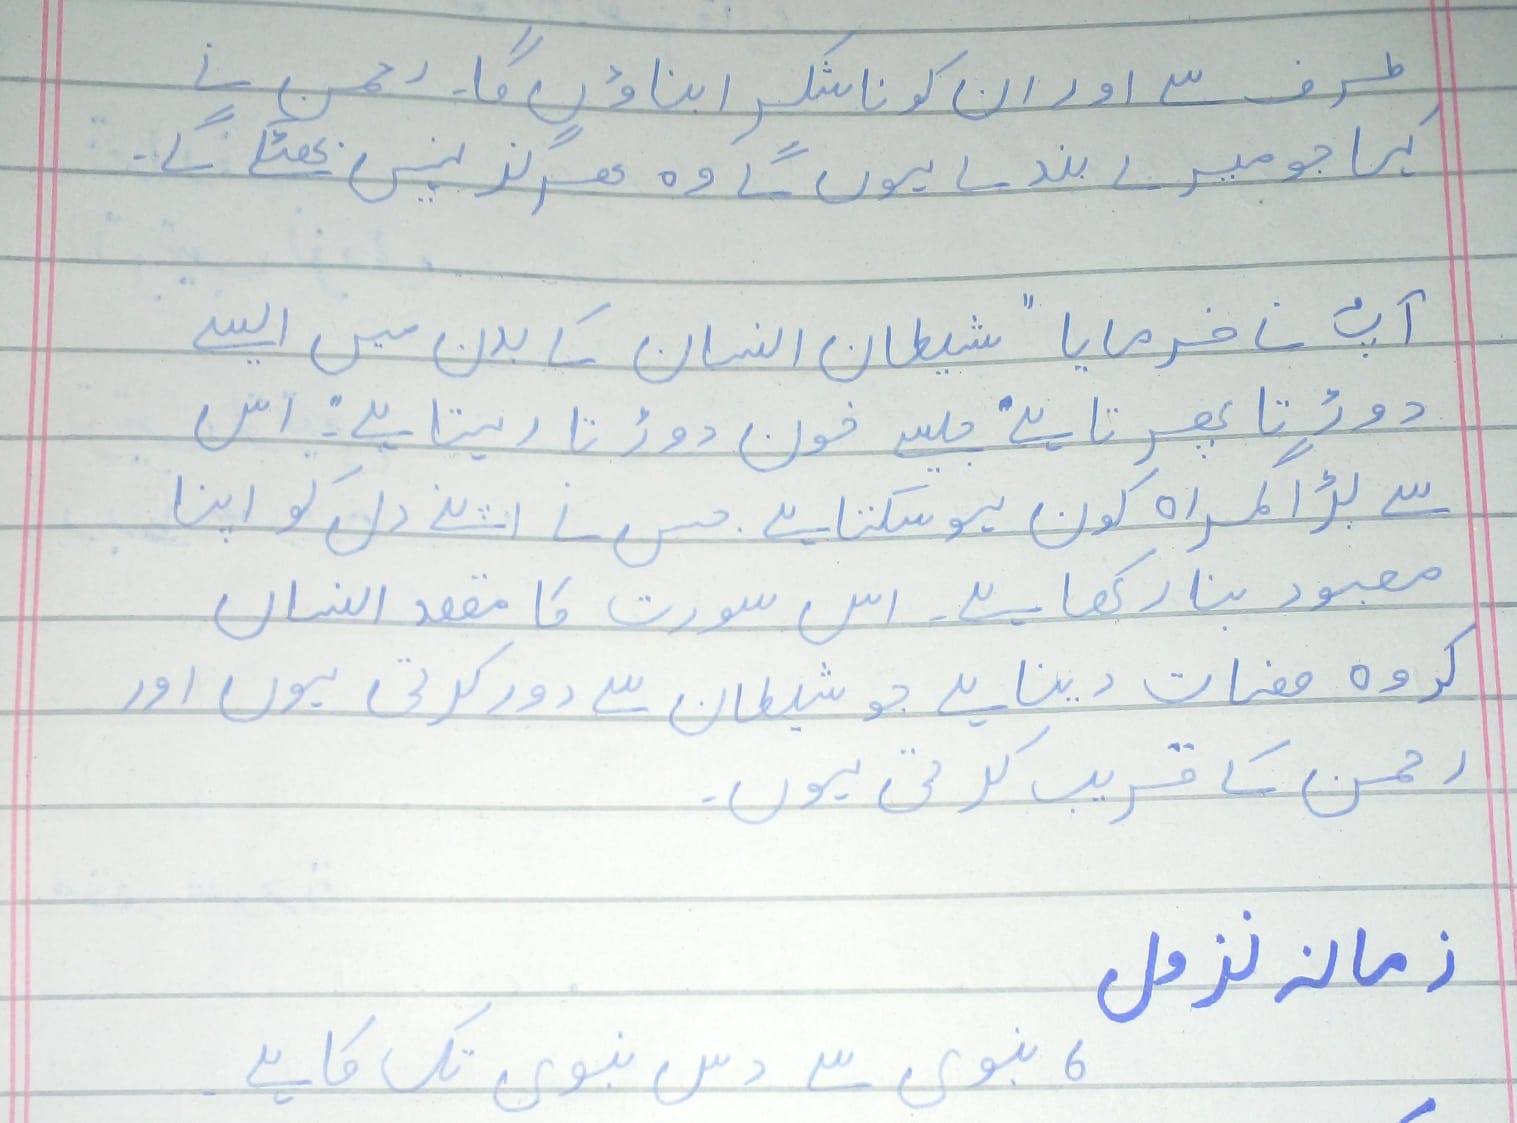 طرف سے اور ان کو ناشکرا بناؤں گا۔ رحمن نے
کہا جو میرے بندے ہوں گے وہ ہرگز نہیں بھٹکے گے۔
آپؐ نے فرمایا "شیطان انسان کے بدن میں ایسے
دوڑتا پھرتا ہے" جیسے خون دوڑتا رہتا ہے"۔ اس
سے بڑا گمراہ کون ہو سکتا ہے جس نے اپنے دل کو اپنا
معبود بنا رکھا ہے۔ اس سورت کا مقصد انسان
کو وہ صفات دینا ہے جو شیطان سے دور کرتی ہوں اور
رحمن کے قریب کرتی ہوں۔
زمانہ نزول
6 نبوی سے دس نبوی تک کا ہے۔